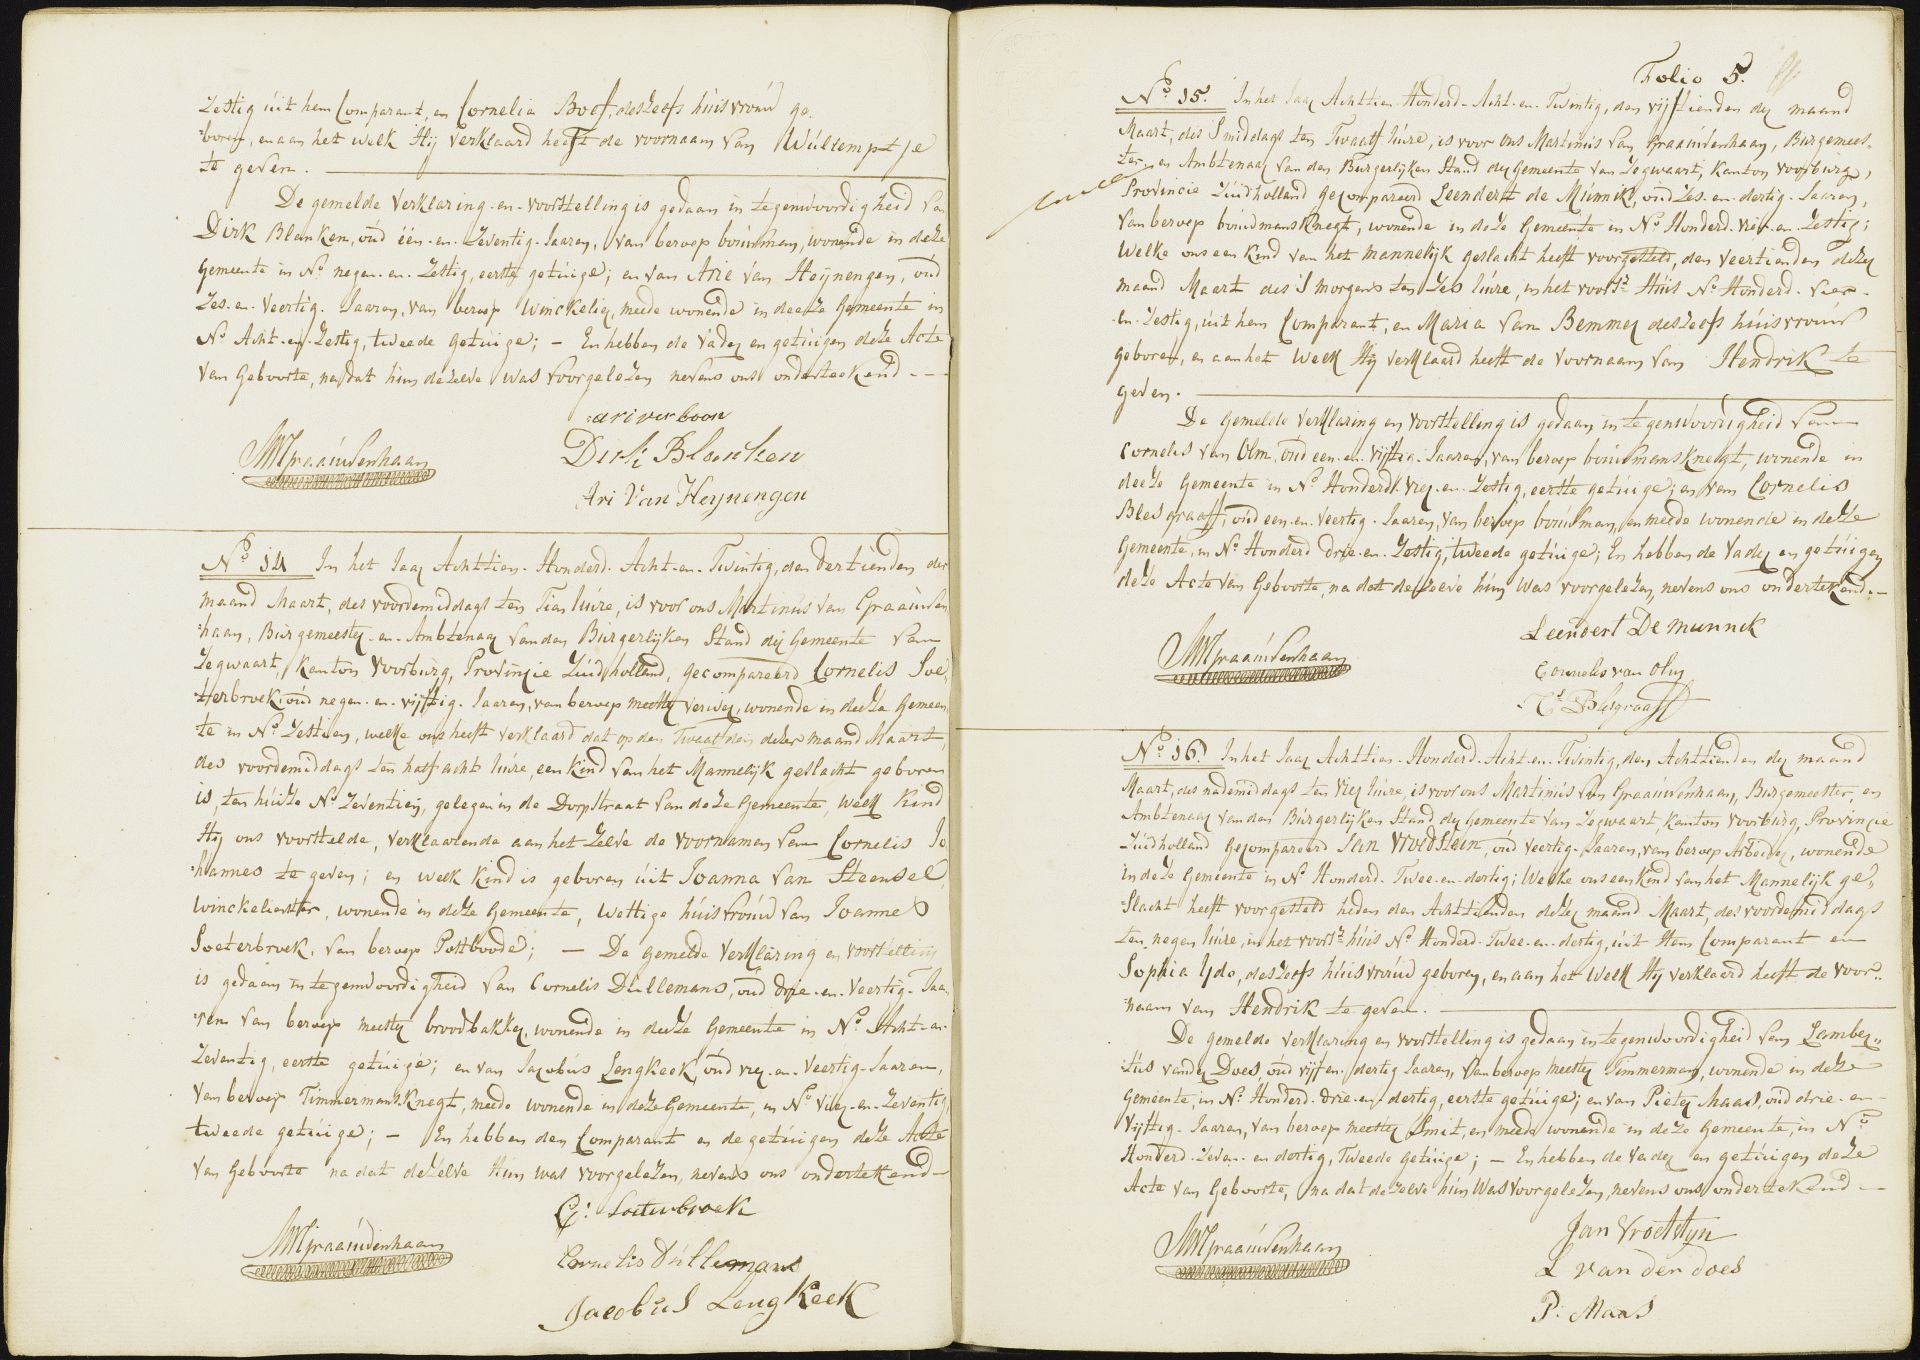 Zestig úit hem Comparant, en Cornelia Boef, deszelfs húisvroúw ge-
boren, en aan het welk Hij verklaard heeft de voornaam van Wúllemptje
te geven.
De gemelde verklaring en voorstelling is gedaan in tegenwoordigheid van
Dirk Blanken, oúd één-en-Zeventig Jaaren, van beroep boúwman, wonende in deze
Gemeente in No. negen-en-Zestig, eerste getúige; en van Arie van Heijnengen, oúd
Zes-en-Veertig Jaaren, van beroep Winckelier, meede wonende in deeze Gemeente in
No. Acht-en-Zestig, tweede getúige; — En hebben de Vader en getúigen deze Acte
van Geboorte, nadat hún dezelve was voorgelezen nevens ons onderteekend ---
ari verboon
MVGraaúwenhaan
Dirk Blanken
Ari Van Heijnengen
No. 14 In het Jaar Achttien-Honderd-Acht-en-Twintig, den dertienden der
maand Maart, des voordemiddags ten Tien úúre, is voor ons Martinús van Graaúwen
haan, Búrgemeester-en-Ambtenaar van den Búrgerlijken Stand der Gemeente van
Zegwaart, Kanton Voorburg, Provincie Zúidholland, gecompareerd Cornelis Soe
terbroek, oúd negen-en-vijftig Jaaren, van beroep meester verwer, wonende in deeze Gemeen
te in No. Zestien, welke ons heeft verklaard dat op den Twaalfden dezer maand Maart,
des voordemiddags ten half acht úúre, een kind van het Mannelijk geslacht geboren
is, ten húize No. Zeventien, gelegen in de Dorpstraat van deze Gemeente, welk Kind
Hij ons voorstelde, verklaarende aan het zelve de voornamen van Cornelis Jo
hannes te geven; en welk kind is geboren úit Joanna van Steensel,
winckelierster, wonende in deze Gemeente, Wettige húisvroúw van Joannes
Soeterbroek, van beroep Postboode; — De gemelde verklaring en voorstelling
is gedaan in tegenwoordigheid van Cornelis Dullemans, oúd drie-en-Veertig-Jaa
ren van beroep meester broodbakker, wonende in deeze Gemeente in No. Acht-en-
Zeventig, eerste getúige; en van Jacobús Lengkeek, oúd vier-en-Veertig-Jaaren,
van beroep Timmermans Knegt, meede wonende in deze Gemeente, in No. Vier-en-Zeventig,
tweede getúige; — En hebben den Comparant en de getúigen deze Acte
van Geboorte na dat dezelve Hún was voorgelezen, nevens ons ondertekend —
C: Soeterbroek
MVGraaúwenhaan
Cornelis Dúllemans
Jacobus Lengkeek
Folio 5.
No. 15. In het Jaar Achttien-Honderd-Acht-en-Twintig, den vijftienden der maand
Maart, des Smiddags ten Twaalf úúre, is voor ons Martinús van Graaúwenhaan, Búrgemees-
ter, en Ambtenaar van den Burgerlijken Stand der Gemeente van Zegwaart, Kanton voorburg,
Provincie Zúidholland gecompareerd Leendert de Múnnik, oúd Zes-en-dertig-Jaaren,
van beroep boúwmans Knegt, wonende in deze Gemeente in No. Honderd-vier-en-Zestig;
Welke ons een Kind van het mannelijk geslacht heeft voorgesteld, den Veertienden dezer
maand Maart des Smorgens ten Zes úúre, in het voorsz. Húis No. Honderd-vier-
en-Zestig, úit hem Comparant, en Maria van Bemmel deszelfs húisvroúw
geboren, en aan het welk Hij verklaard heeft de voornaam van Hendrik te
geven.
De Gemelde verklaring en voorstelling is gedaan in tegenwoordigheid van
Cornelis van Olm, oúd een-en-vijftig-Jaaren, van beroep boúwmansknegt, wonende in
deeze Gemeente in No. Honderd-vier-en-Zestig, eerste getúige; en van Cornelis
Blesgraaff, oúd een-en-Veertig-Jaaren, van beroep boúwman, en meede wonende in deeze
Gemeente, in No. Honderd drie-en-Zestig, tweede getúige; En hebben de vader en getúigen
deze Acte van Geboorte, na dat dezelve hún was voorgelezen, nevens ons ondertekend. —
Leendert De munnik
MVGraaúwenhaan
Cornelis van Olm
Cs. Blesgraaff
No. 16. In het Jaar Achttien-Honderd-Acht-en-Twintig, den Achttienden der maand
Maart, des nademiddags ten Vier úúre, is voor ons Martinús van Graaúwenhaan, Búrgemeester, en
Ambtenaar van den Búrgerlijken Stand der Gemeente van Zegwaart, Kanton voorbúrg, Provincie
Zúidholland Gecompareerd Jan Vroedstein, oúd veertig-Jaaren, van beroep Arbeider, wonende
in deze Gemeente in No. Honderd-Twee-en-dertig; Welke ons een Kind van het Mannelijk ge„
slacht heeft voorgesteld heden den Achttienden dezer maand Maart, des voordemiddags
ten negen úúre, in het voorsz. húis No. Honderd-Twee-en-dertig, úit Hem Comparant en
Sophia Ydo, deszelfs húisvroúw geboren, en aan het Welk Hij verklaerd heeft de voor„
naam van Hendrik te geven.
De gemelde verklaring en voorstelling is gedaan in tegenwoordigheid van Lamber„
tús van der Does, oúd vijf en dertig Jaaren, van beroep meester Timmerman, wonende in deze
Gemeente, in No. Honderd-drie-en-dertig, eerste getúige; en van Pieter Maas, oúd drie-en-
Vijftig-Jaaren, van beroep meester Smit, en meede wonende in deze Gemeente, in No.
Honderd-Zeven-en dertig, Tweede getúige; — En hebben de Vader en getúigen deze
Acte van Geboorte, na dat dezelve hún was voorgelezen, nevens ons ondertekend —
Jan Vroetstyn
MVGraaúwenhaan
L van der does
P: Maas